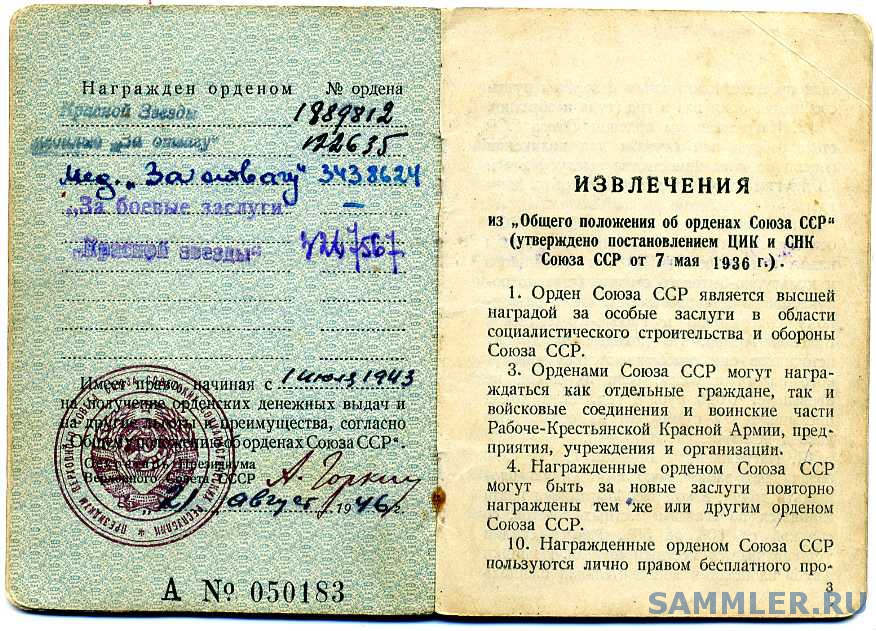 Награжден орденом № ордена
Красной Звезды 1889812
медалью „За отвагу" 122635
Мед. „За отвагу" 3438624
„За боевые заслуги —
„Красной звезды" 3247567
Имеет право, начиная с 1 июля 1943
на получение орденских денежных выдач и
на другие льготы и преимущества, согласно
„Общему положению об орденах Союза ССР".
Секретарь Президиума
Верховного Совета СССР А. Горкин
„21" август 1946 г.
А № 050183
ИЗВЛЕЧЕНИЯ
из „Общего положения об орденах Союза ССР"
(утверждено постановлением ЦИК и СНК
Союза ССР от 7 мая 1936 г.).
1. Орден Союза ССР является высшей
наградой за особые заслуги в области
социалистического строительства и обороны
Союза ССР.
3. Орденами Союза ССР могут награ-
ждаться как отдельные граждане, так и
войсковые соединения и воинские части
Рабоче-Крестьянской Красной Армии, пред-
приятия, учреждения и организации.
4. Награжденные орденом Союза ССР
могут быть за новые заслуги повторно
награждены тем же или другим орденом
Союза ССР.
10. Награжденные орденом Союза ССР
пользуются лично правом бесплатного про-
3
SAMMLER.RU